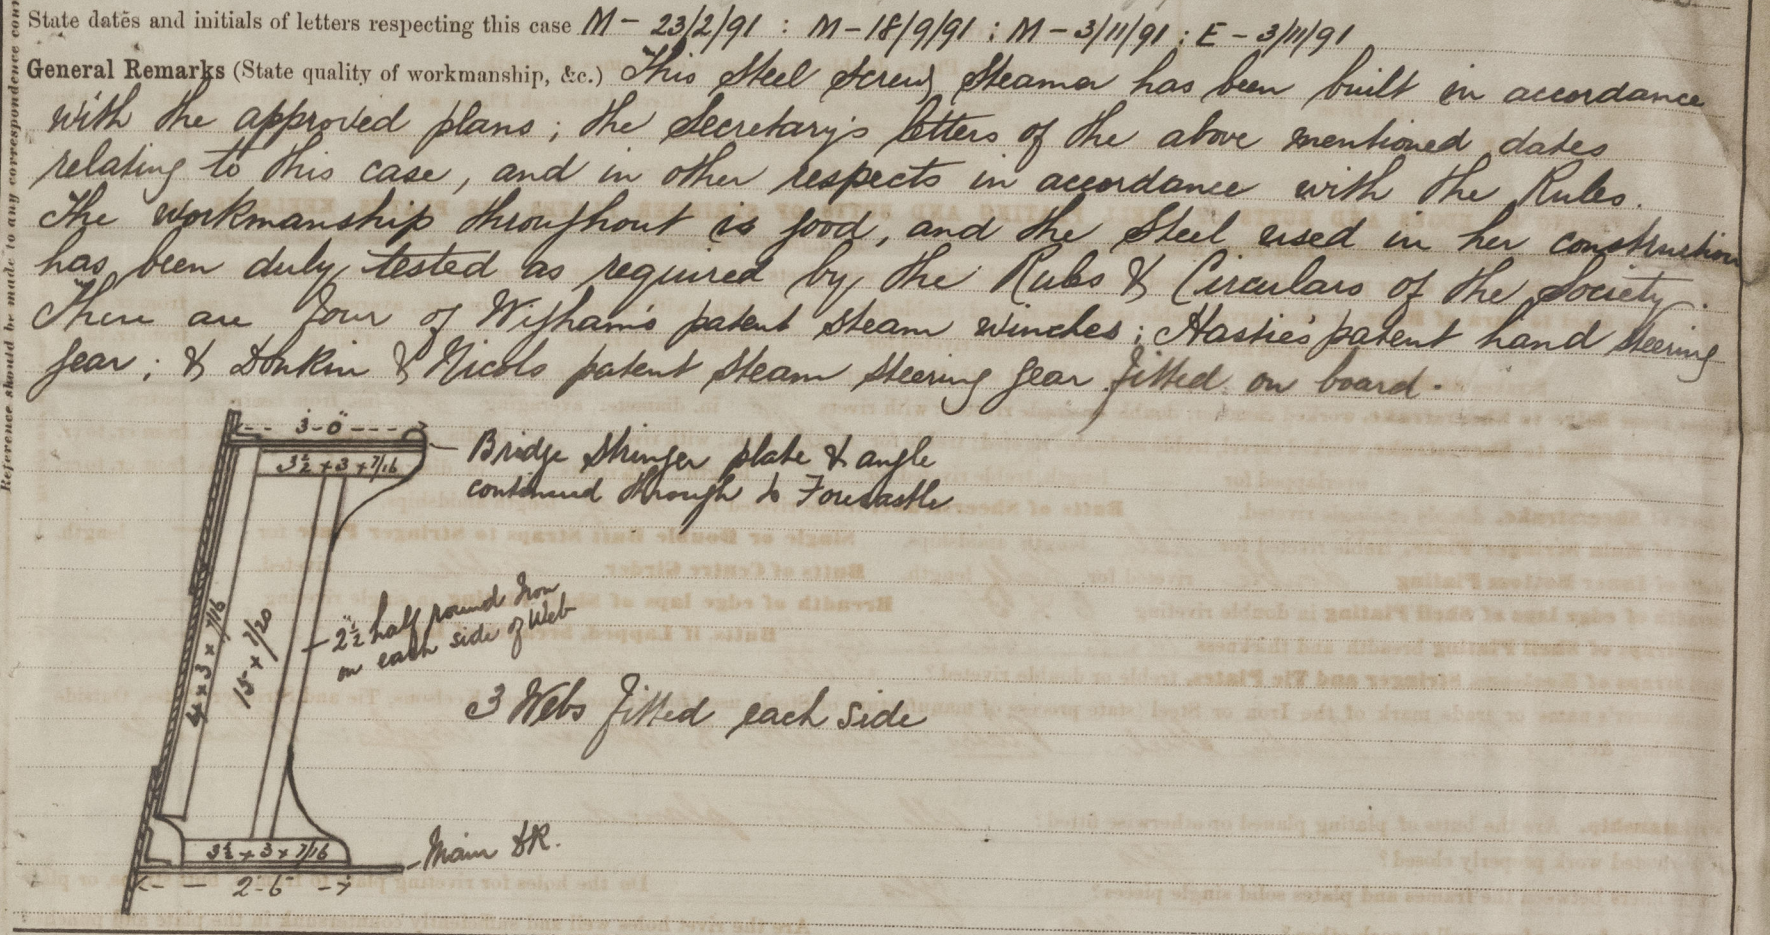 State dates and initials of letters respecting this case M - 23/2/91 : M - 18/9/91 ; M - 3/11/91 ; E - 3/11/91
General Remarks (State quality of workmanship, &c.) This Steel Screw Steamer has been built in accordance
with the approved plans ; the Secretary's letters of the above mentioned dates
relating to this case, and in other respects in accordance with the Rules.
The workmanship throughout is good, and the Steel used in her construction
has been duly tested as required by the Rules & Circulars of the Society.
There are four of Wigham's patent steam winches ; Hastie's patent hand steering
gear ; & Donkin & Nicols patent steam steering gear fitted on board.
Reference should be made to any correspondence
3-0"
3½ × 3 × 7/16
Bridge Stringer plate & angle
continued through to Forecastle
4 × 3 × 7/16
15 × 7/20
2½" half round Iron
on each side of Web
3 Webs fitted each side
3½ × 3 × 7/16
Main DK.
2-6